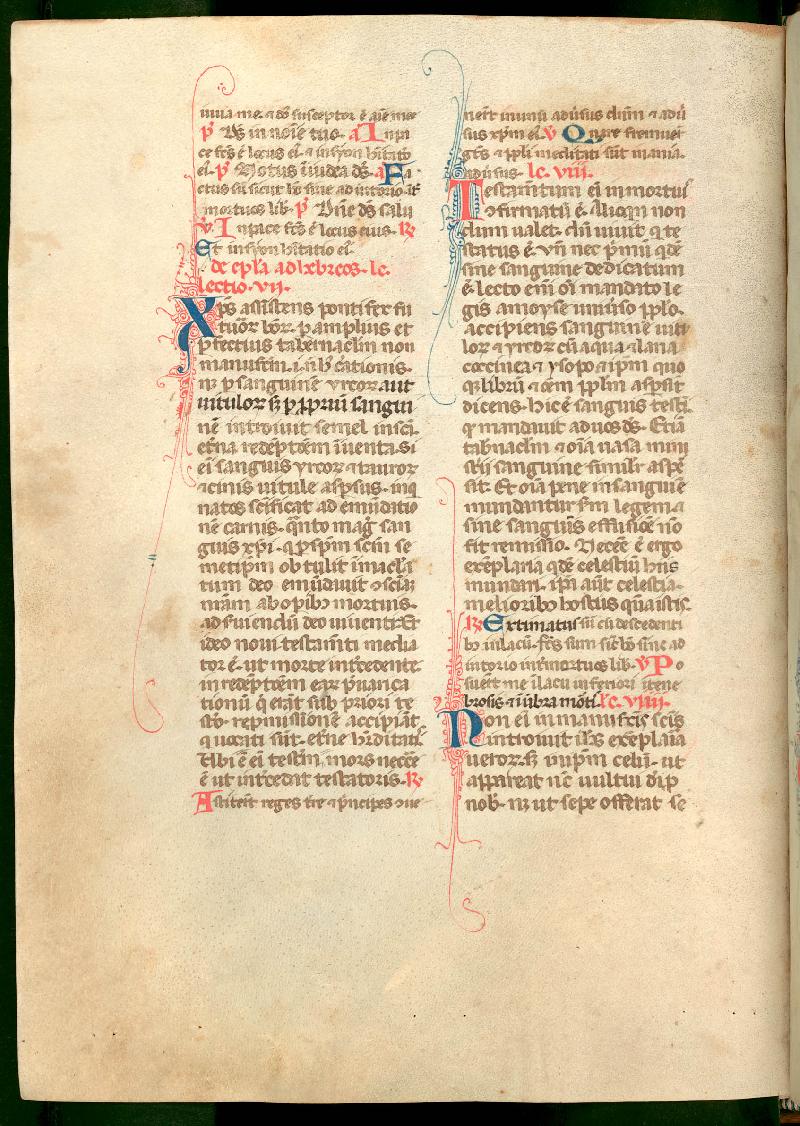 iuua me. ⁊ dn̄s susceptor ē aīe mee
p̄ Ds̄ in noīe tuo. a In pa
ce fcs̄ ē locus eī. ⁊ in syon hītatō
eī. p̄ Notus ī iudea ds̄. a Fa
ctus sū sicut hō sine adiutorio īt̄
mortuos lib. p̄ Dn̄e ds̄ salu
v̄. In pace fcs̄ ē locus eius. R̄
Et in syon hītatio eī.
de epl̄a ad hebreos. lc.
Lectio. vii.
Xp̄s assistens pontifex fu
tuoꝝ bōꝝ. p amplius et
pfectius tabernaclm̄ non
manufcm̄. i. n̄ hꝰ cationis.
nꝫ p sanguinē yrcoꝝ aut
uitulor̄ sꝫ p ppriū sangui
nē introiuit semel in scā.
etn̄a redēptōem īuenta. Si
eī sanguis yrcoꝝ ⁊ tauroꝝ
⁊ cinis uitule aspsus. inq̄
natos scīficat ad emūdatio
nē carnis. q̄nto maḡ san
guis xpī. q̄ p spm̄ scm̄ se
metipm̄ obtulit īmacla
tum deo emūdauit ⁊sciāꝫ
nr̄am ab opibꝰ mortuis.
ad s̄uiendū deo uiuenti. Et
ideo noui testam̄ti media
tor ē. ut morte int̄cedente
in redēptōem eaꝝ p̄uarica
tionū q̄ erāt sub priori te
sto. repmissionē accipiāt
q uocati sūt. et̄ne h̄editatꝭ.
Ubi ē eī testm̄ mors necēē
ē ut int̄cedat testatoris. R̄
Astiterūt reges tr̄e ⁊ p̄ncipes ⁊ue
nerūt in unū adūsus dn̄m ⁊ adū
sus xpm̄ eī. v̄ Quare fremuer̄
gēs ⁊ ppl̄i meditati sūt inania.
adūsus. lc. viii.
Testam̄tum eī in mortuiꝭ
⁊firmatū ē. Alioqn̄ non
dum ualet. dū uiuit q te
status ē. Vn̄ nec p̄mū qdē
sine sanguine dedicatum
ē. lecto enī oī mandato le
gis a moyse uniuso pplo.
accipiens sanguinē uitu
loꝝ ⁊ yrcoꝝ cū aqua ⁊ lana
coccinea ⁊ ysopo ⁊ ipm̄ quo
qꝫ librū ⁊ oēm pplm̄ asp̄sit
dicens. hic ē sanguis testi.
q mandauit ad uos ds̄. Etiā
tabnaclm̄ ⁊ oīa uasa mini
st̄ii sanguine similr̄ asp̄
sit. Et oīa pene in sanguīe
mundantur scm̄ legem. ⁊
sine sanguīs effusiōe nō
fit remissio. Necēē ē ergo
exēplaria qdē celestiū hiis
mundari. ip̄a aūt celestia
melioribꝰ hostiis quā istis.
R̄ Extimatus sū cū descēdenti
bꝰ in lacū. fcs̄ sum sic̄ hō sīne ad
iutorio int̄ mortuos lib. v̄ Po
suer̄t me ī lacu inferiori ī tene
brosis ⁊ ī ūbra mōtī. lc. viiii.
Non eī in manufctis scīs
introiuit ih̄s exēplaia
ueroꝝ. sꝫ in ipm̄ celū. ut
appareat nc̄ uultui dī p
nob. nꝫ ut sepe offerat se